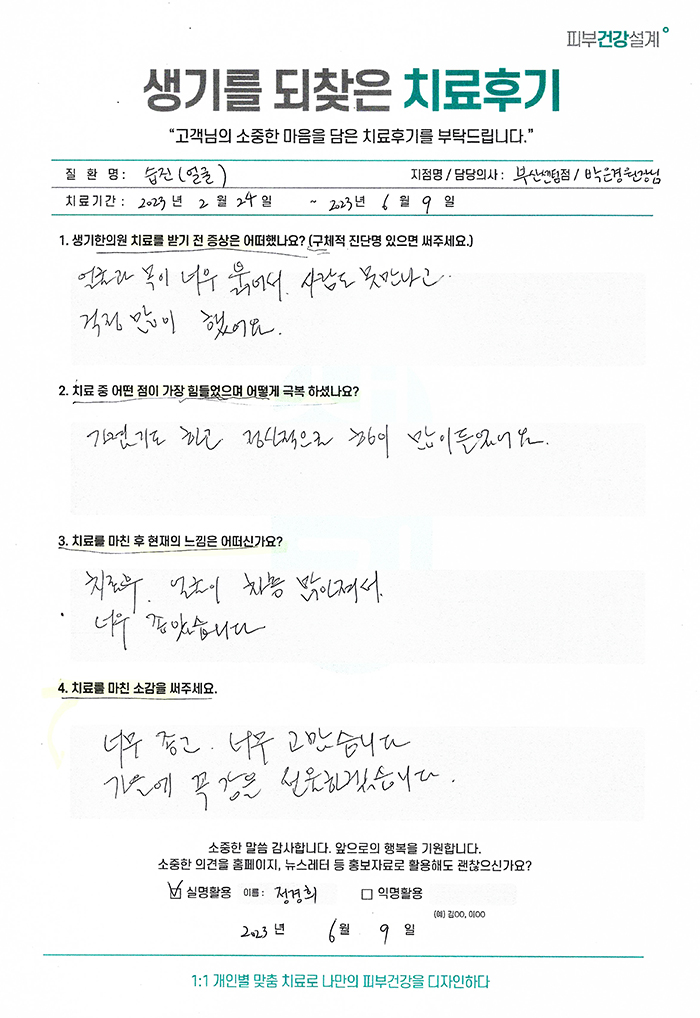 피부건강설계
생기를 되찾은 치료후기
“고객님의 소중한 마음을 담은 치료후기를 부탁드립니다.”
질 환 명 : 습진(얼굴) 지점명 / 담당의사 : 부산센텀점 / 박은경원장님
치료기간 : 2023 년 2 월 24 일 ~ 2023 년 6 월 9 일
1. 생기한의원 치료를 받기 전 증상은 어떠했나요? (구체적 진단명 있으면 써주세요.)
얼굴과 목이 너무 붉어서. 사람도 못만나고..
걱정 많이 했어요.
2. 치료 중 어떤 점이 가장 힘들었으며 어떻게 극복 하셨나요?
가렵기도 하고 정신적으로 힘이 많이들었어요.
3. 치료를 마친 후 현재의 느낌은 어떠신가요?
치료후. 얼굴이 차츰 맑아져서.
너무 좋았습니다
4. 치료를 마친 소감을 써주세요.
너무 좋고. 너무 고맙습니다
가을에 꼭 선물하겠습니다.
소중한 말씀 감사합니다. 앞으로의 행복을 기원합니다.
소중한 의견을 홈페이지, 뉴스레터 등 홍보자료로 활용해도 괜찮으신가요?
실명활용 이름 : 정경희 익명활용
(예) 김OO, 이OO
2023 년 6 월 9 일
1:1 개인별 맞춤 치료로 나만의 피부건강을 디자인하다